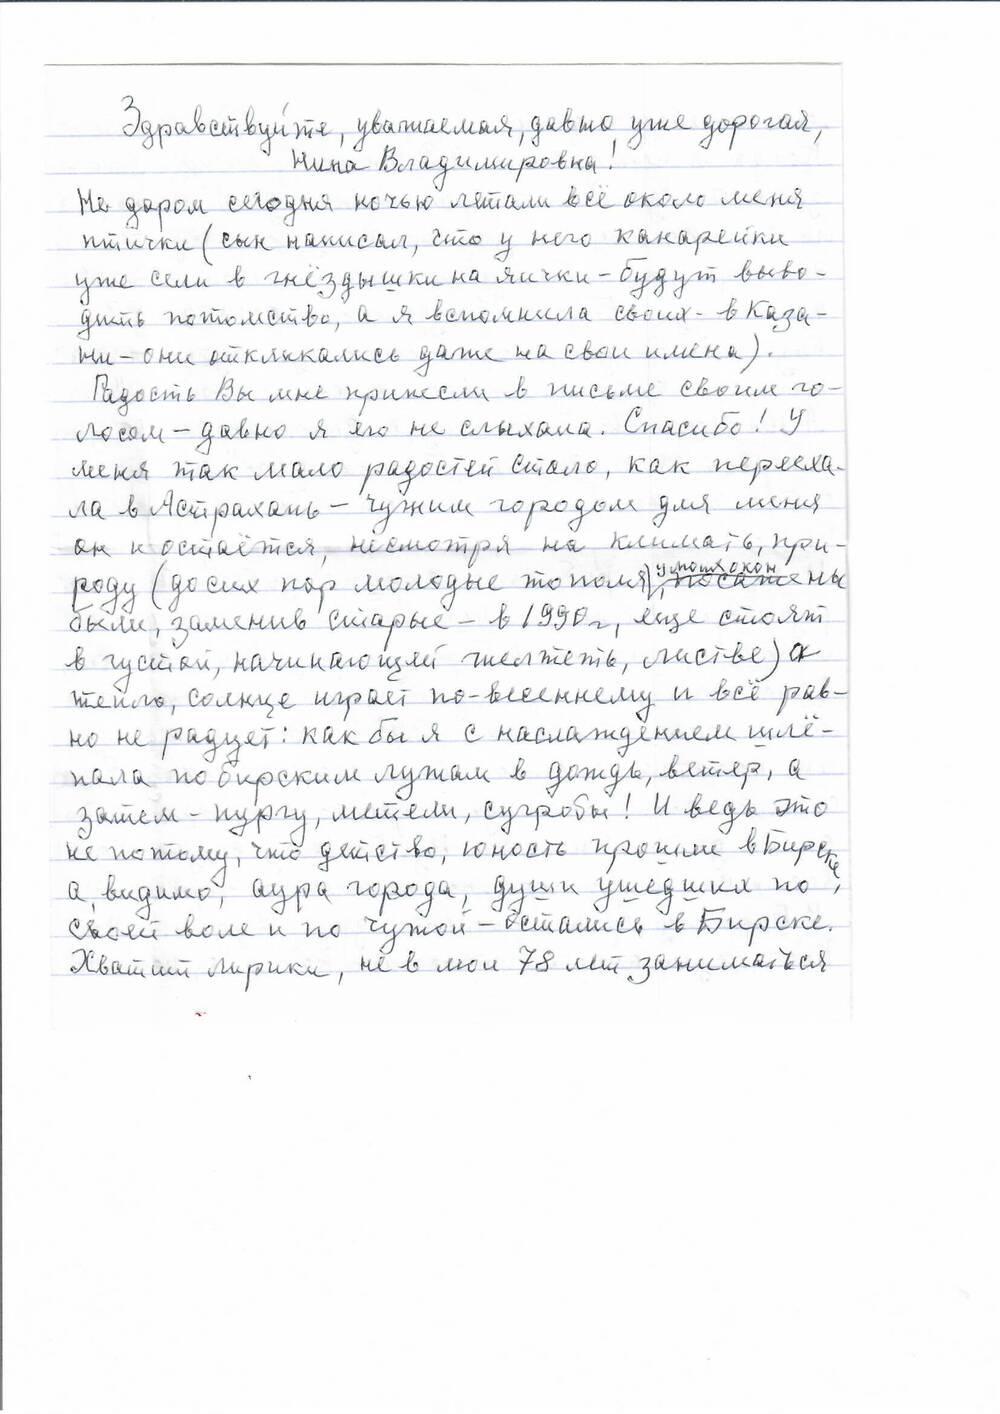 Здравствуйте, уважаемая, давно уже дорогая,
Нина Владимировна!
Не даром сегодня ночью летали всё около меня
птички (сын написал, что у него канарейки
уже сели в гнёздышки на яички – будут выво-
дить потомство, а я вспомнила своих - в Каза-
ни – они откликались даже на свои имена).
Радость Вы мне принесли в письме своим го-
лосом – давно я его не слыхала. Спасибо! У
меня так мало радостей стало, как перееха-
ла в Астрахань – чужим городом для меня
он и остаётся, несмотря на климать, при-
роду (до сих пор молодые тополя у наших окон, посажены
были, заменив старые – в 1990 г, еще стоят
в густой, начинающей желтеть, листве) а
тепло, солнце играет по-весеннему и всё рав-
но не радует: как бы я с наслаждением шлё-
пала по бирским лужам в дождь, ветер, а
затем – пургу, метели, сугробы! И ведь это
не потому, что детство, юность прошли в Бирске,
а, видимо, аура города, души ушедших по
своей воле и по чужой – остались в Бирске.
Хватит лирики, не в мои 78 лет заниматься